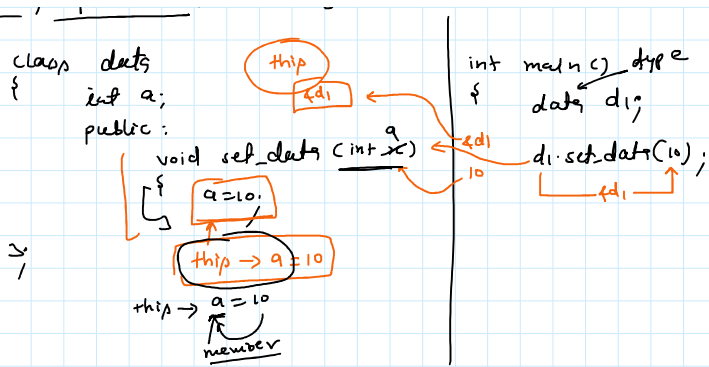 class data
{
int a;
public :
void set_data (int x)
a
{
a=10;
}
this → a = 10
this → a = 10
member
};
this
&d1
int main()
type
{
data d1;
d1.set_data(10);
&d1
10
&d1